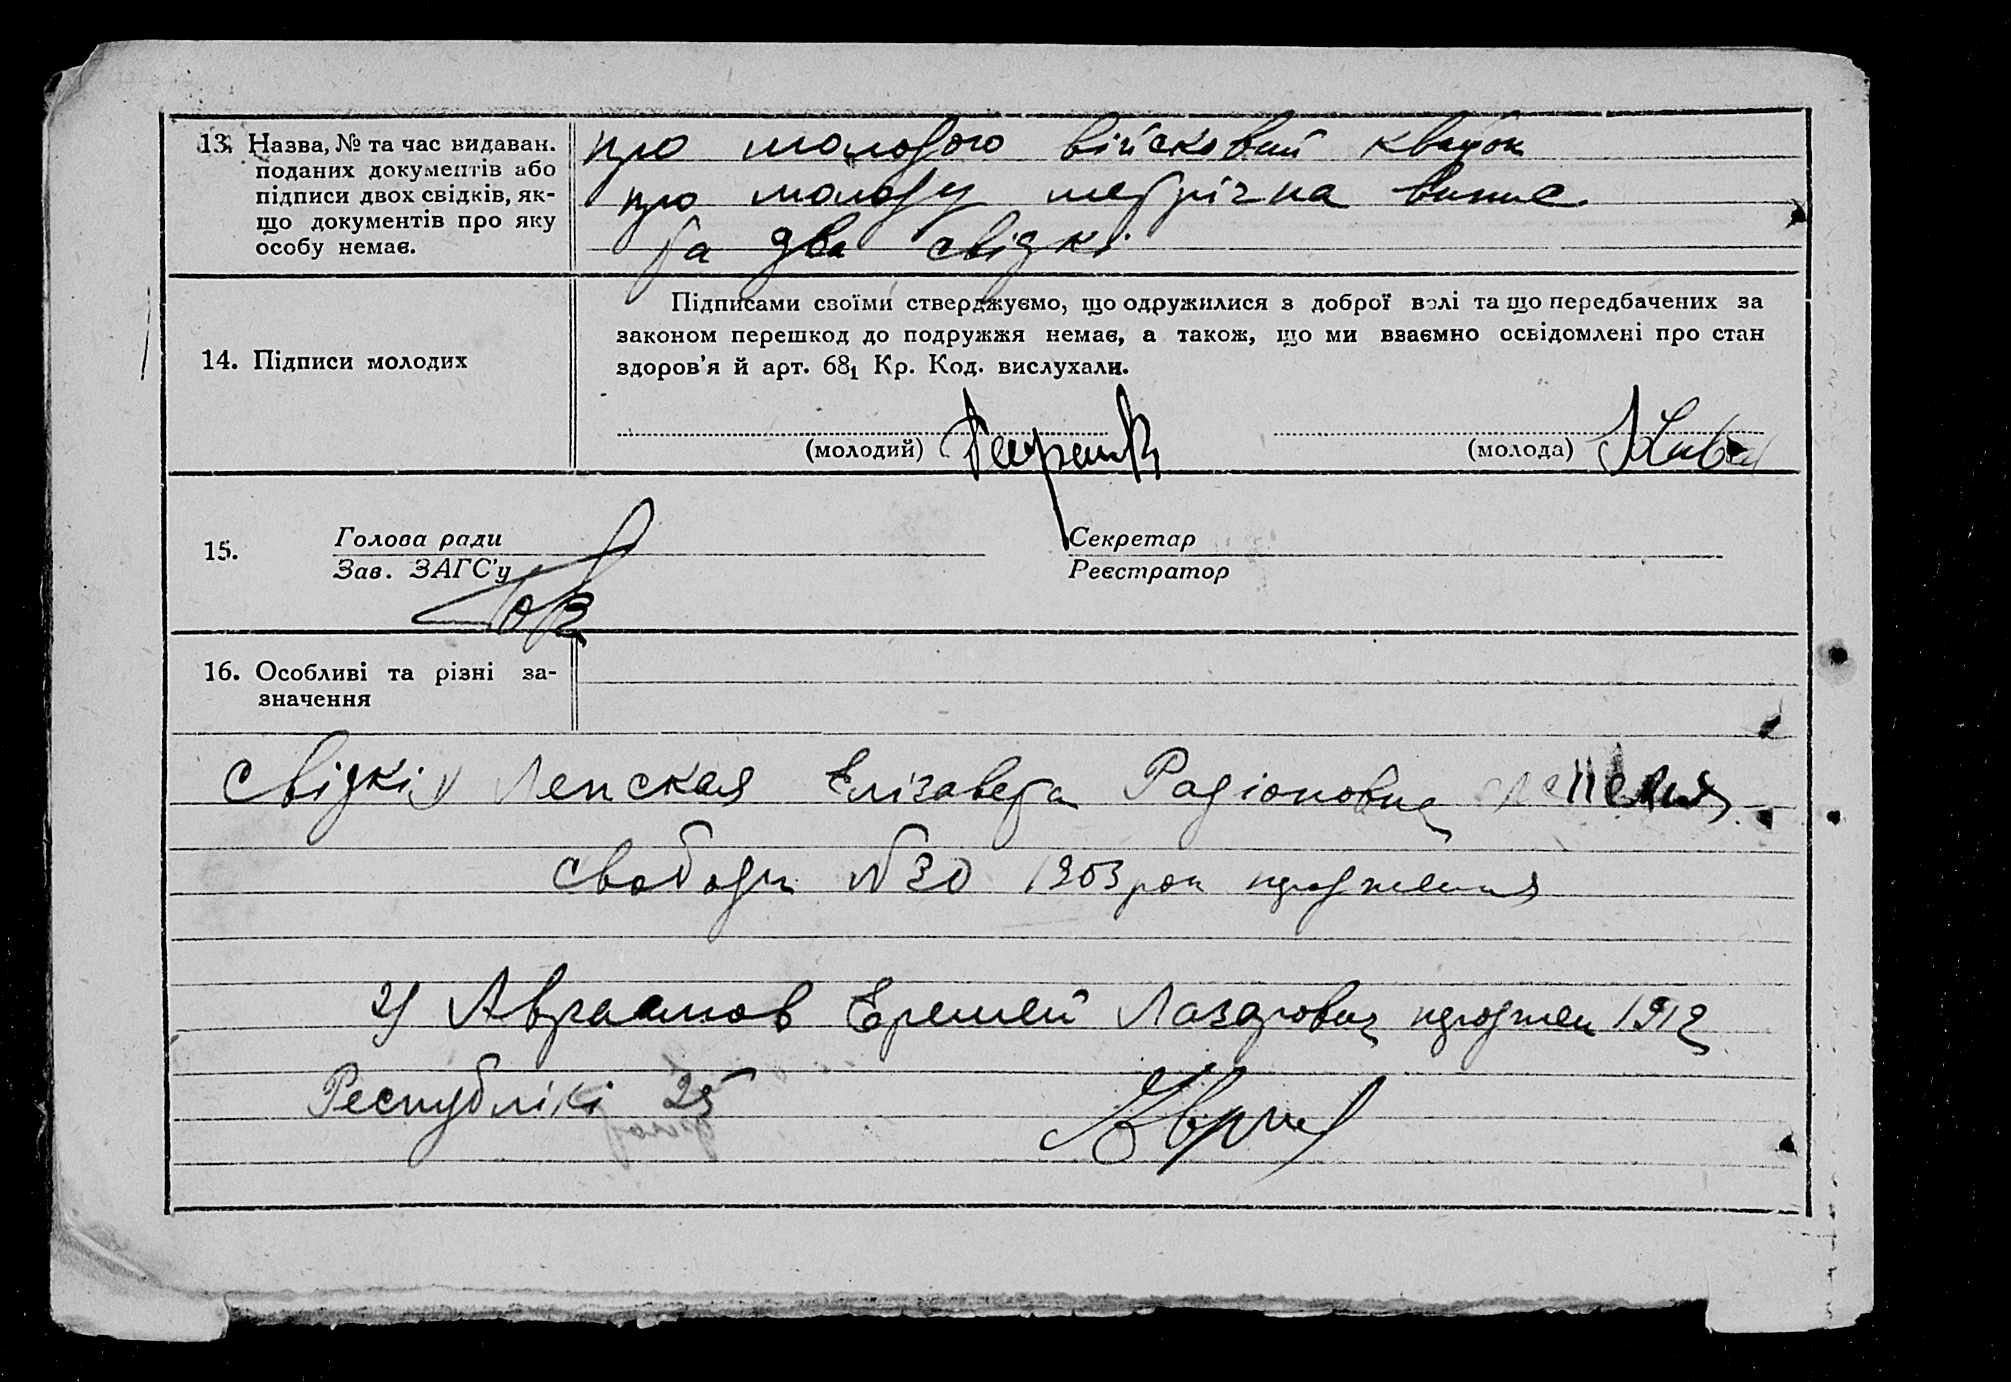 13. Назва, № та час видаван.
поданих документів або
підписи двох свідків, як-
що документів про яку
особу немає.
про молодого військовий квиток
про молоду метрічна випис
та два свідкі
14. Підписи молодих
Підписами своїми стверджуємо, що одружилися з доброї волі та що передбачених за
законом перешкод до подружжя немає, а також, що ми взаємно освідомлені про стан
здоров'я й арт. 68₁ Кр. Код. вислухали.
(молодий)
(молода)
15.
Голова ради
Зав. ЗАГС'у
Секретар
Реєстратор
16. Особливі та різні за-
значення
Свідкі 1) Лепская Елізавета Радіоновна
Свободи №30 1903 рок
2) Авраамов Еремей Лазарович 1912
Республікі 25